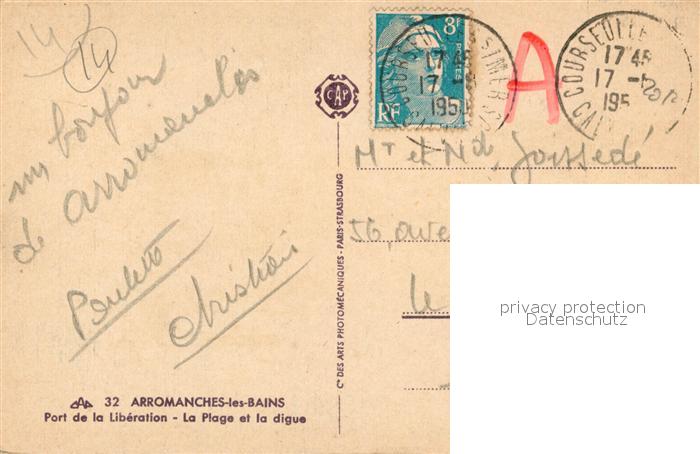 14
14
un bonjour
de arromanches
Paulette
christian
32 ARROMANCHES-les-BAINS
Port de la Libération - La Plage et la digue
CAP
Cie DES ARTS PHOTOMÉCANIQUES - PARIS-STRASBOURG
8F
POSTES
RF
17 45
17 -
195
A
COURSEULLE
17 45
17 -
195
Mr et Me
56, ave
le
privacy protection
Datenschutz